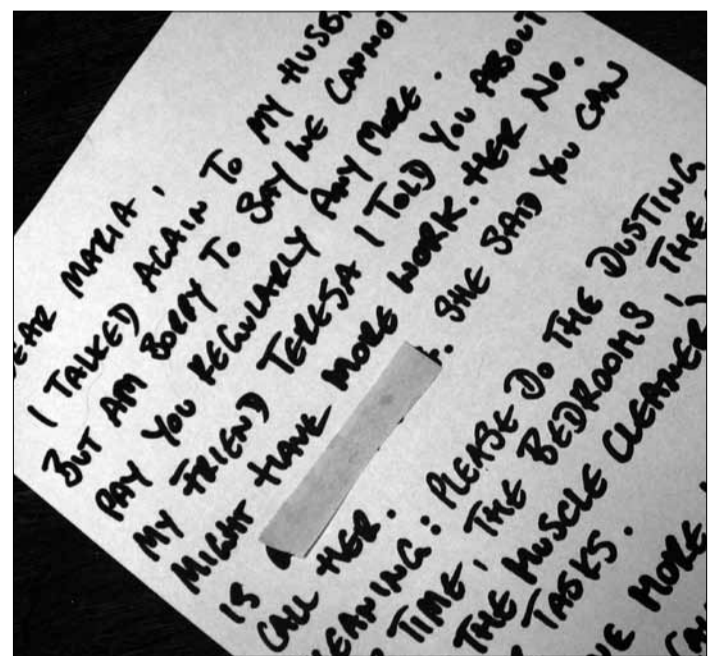 EAR MARIA,
I TALKED AGAIN TO MY HUSB
BUT AM SORRY TO SAY WE CANNOT
PAY YOU REGULARLY ANY MORE.
MY FRIEND TERESA I TOLD YOU ABOUT
MIGHT HAVE MORE WORK. HER NO.
IS . SHE SAID YOU CAN
CALL HER.
EANING: PLEASE DO THE DUSTING
TIME, THE BEDROOMS, THE
THE MUSCLE CLEANER
TASKS.
MORE